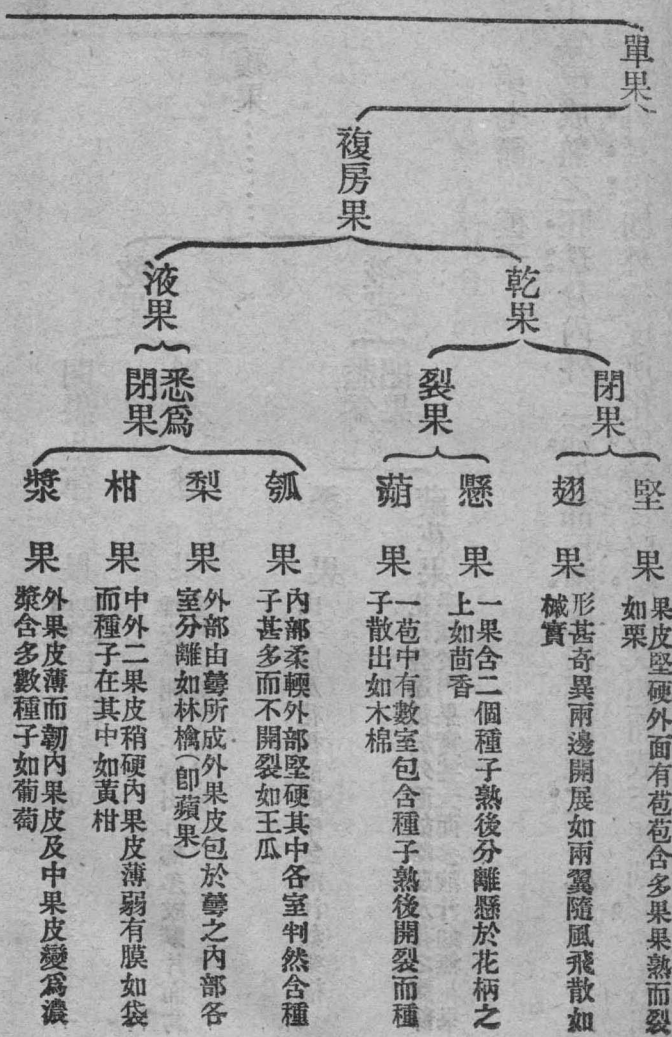 單果
複房果
乾果
閉果
堅果
果皮堅硬外面有苞苞含多果果熟而裂
如栗
翅果
形甚奇異兩邊開展如兩翼隨風飛散如
槭實
裂果
懸果
一果含二個種子熟後分離懸於花柄之
上如茴香
蒴果
一苞中有數室包含種子熟後開裂而種
子散出如木棉
液果
悉爲
閉果
瓠果
內部柔輭外部堅硬其中各室判然含種
子甚多而不開裂如王瓜
梨果
外部由蕚所成外果皮包於蕚之內部各
室分離如林檎(卽蘋果)
柑果
中外二果皮稍硬內果皮薄弱有膜如袋
而種子在其中如黃柑
漿果
外果皮薄而韌內果皮及中果皮變爲濃
漿含多數種子如葡萄